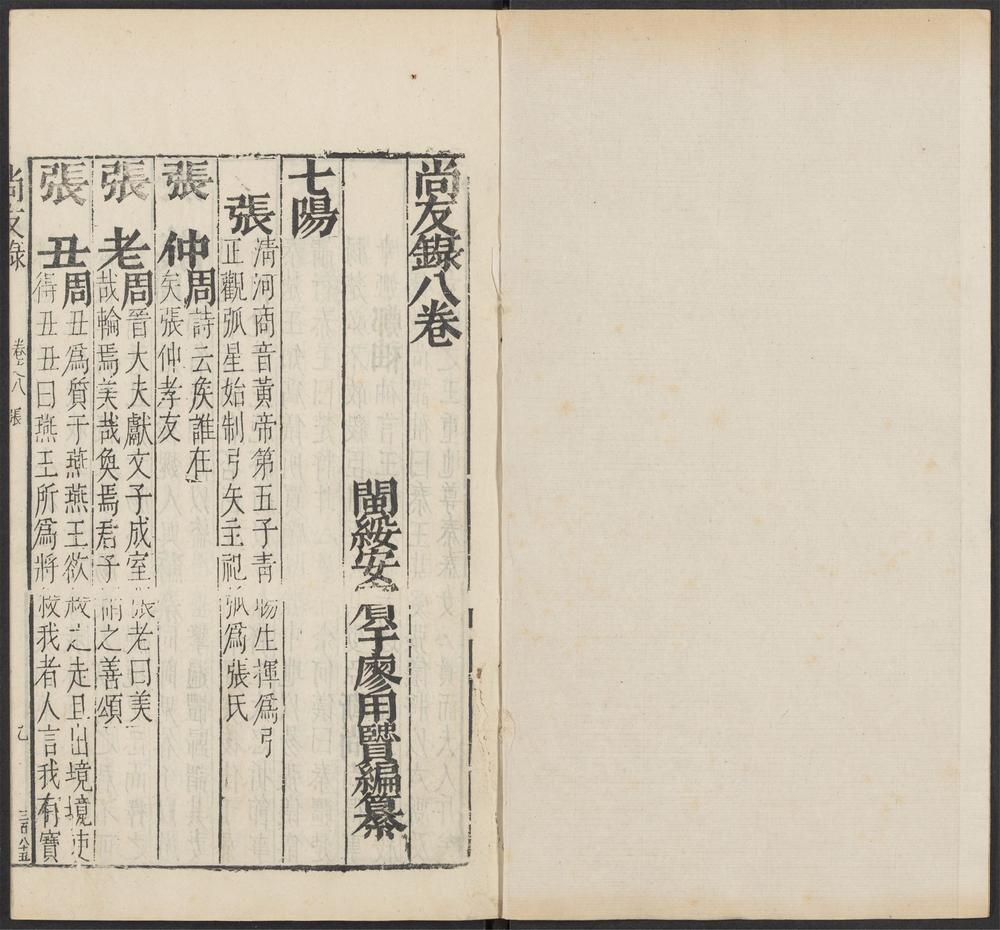 尚友錄八卷
閩綏安賓于廖用賢編纂
七陽
張
清河商音黃帝第五子青陽生揮爲弓
正觀弧星始制弓矢主祀弧爲張氏
張仲
周詩云矦誰在
矣張仲孝友
張老
周晉大夫獻文子成室張老曰美
哉輪焉美哉奐焉君子謂之善頌
張丑
周丑爲質于燕燕王欲殺之走且出境境吏
得丑丑曰燕王所爲將殺我者人言我有寶
尚友錄
卷之八
張
乙
三百八十五